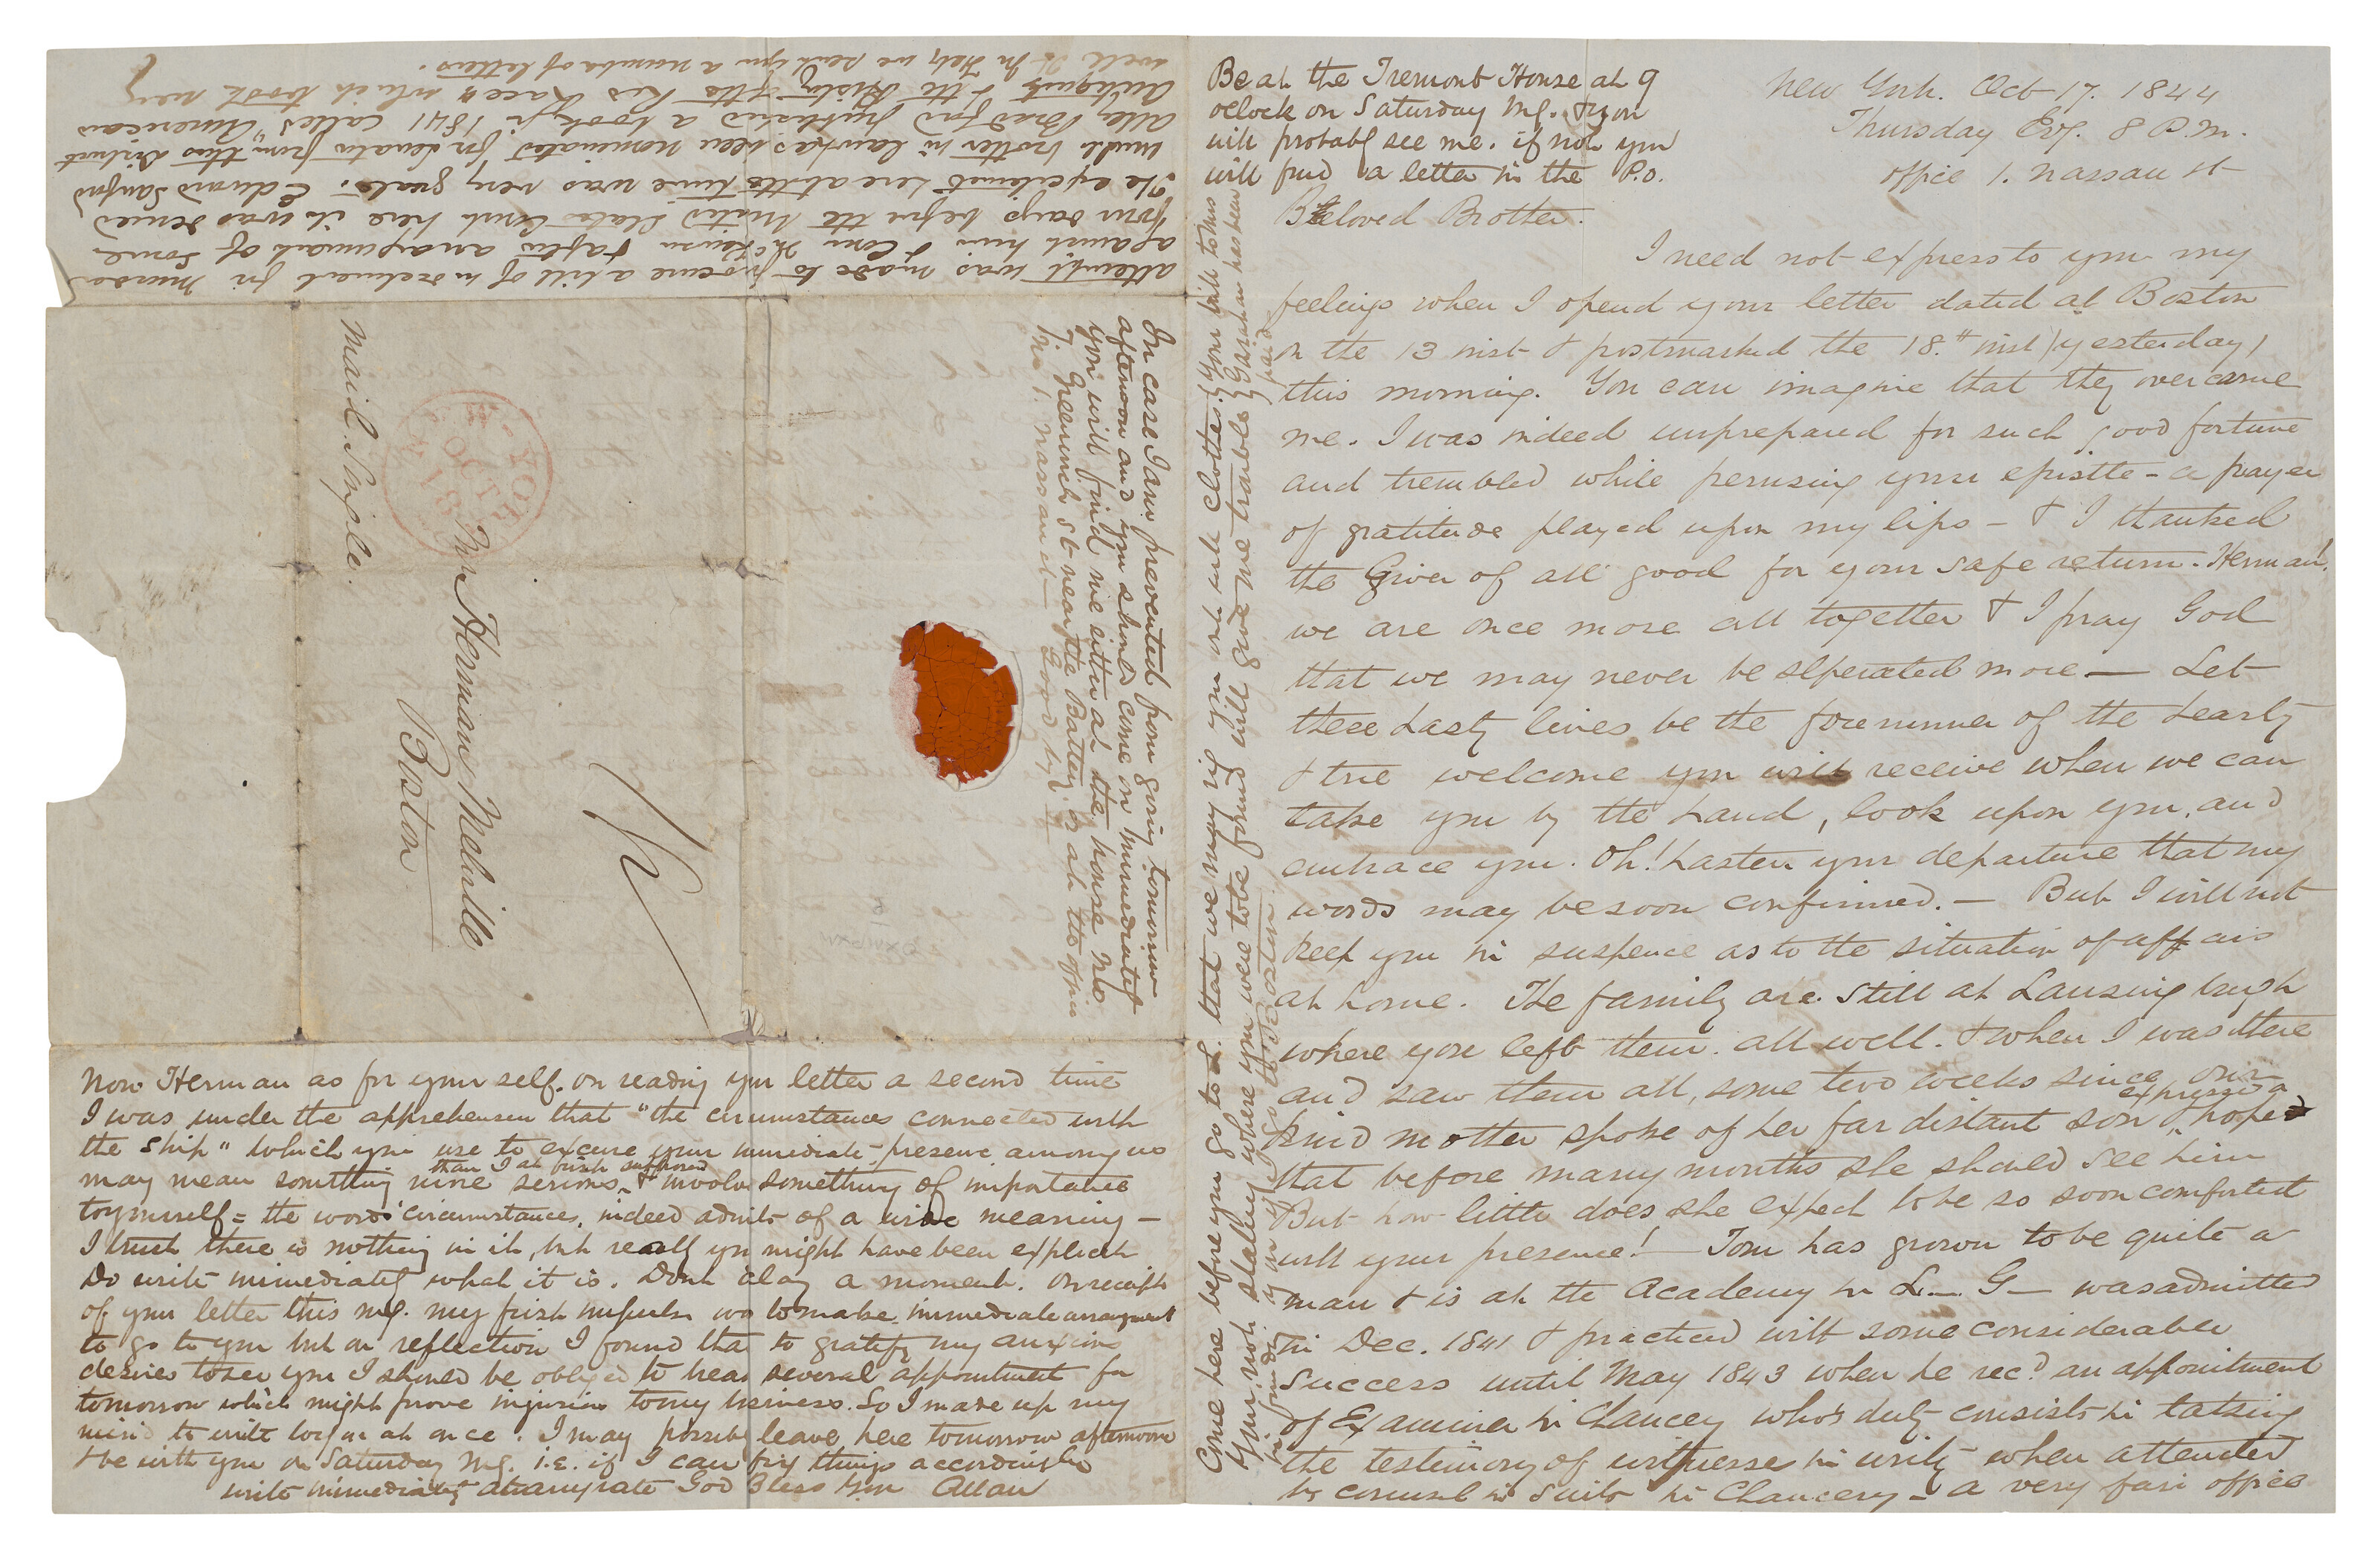 Be at the Tremont House at 9
oclock on Saturday Mg. & you
will probably see me. if not you
will find a letter in the P.O.
New York. Oct 17. 1844
Thursday Evg. 8 P.M.
office 1. Nassau st
Beloved Brother.
I need not express to you my
feelings when I opend your letter dated at Boston
on the 13 inst & postmarked the 18.th inst (yesterday)
this morning. You can imagine that they overcame
me. I was indeed unprepared for such good fortune
and trembled while perusing your epistle - a prayer
of gratitude played upon my lips - & I thanked
the Giver of all good for your safe return. Herman!
we are once more all together & I pray God
that we may never be seperated more — Let
these hasty lines be the forerunner of the hearty
& true welcome you will receive when we can
take you by the hand, look upon you, and
embrace you. Oh! hasten your departure that my
words may be soon confirmed. — But I will not
keep you in suspence as to the situation of affairs
at home. The family are still at Lansingburgh
where you left them. all well. & when I was there
and saw them all, some two weeks since, our
kind mother spoke of her far distant son & expressed a hope
that before many months she should see him
But how little does she expect to be so soon comforted
with your presence! — Tom has grown to be quite a
man & is at the Academy in L— G— was admitted
in Dec. 1841 & practiced with some considerable
success until May 1843 when he rec.d an appointment
of Examiner in Chancey who's duty consists in taking
the testimony of witnesse in writg when attended
by counsel in Suits in Chancery - a very fair office
Come here before you go to L. that we may rig you out with Clothes.
your not stating where you were to be found will give me trouble
in finding you if I go to Boston.
Your bill to this
Gaishan has been
paid
attempt was made to procure a bill of indictment for murder
against him & Com McKenzie & after an argument of some
four days before the United States Court here it was denied
The excitement here at the time was very great. Edward Sanford
brother in law has been nominated for senator from this District
Alex Bradford published a book in 1841 called "American
Antiquities & the History of the Red Race" which took very
well In Feby we sent you a number of letters.
In case I am prevented from going tomorrow
afternoon and you should come on immediately
you will find me either at the house No
7 Greenwich St near the Battery or at the office
No 1. Nassau st Good bye
Mail. Single.
N. YORK
OCT
18
Mr Herman Melville
Boston
Now Herman as for your self. on reading your letter a second time
I was under the apprehension that "the circumstances connected with
the ship" which you use to excuse your immediate presence among us
may mean something more serious than I at first supposed & involve something of importance
to yourself = the word 'circumstances, indeed admits of a wide meaning —
I trust there is nothing in it, but really you might have been explicit
Do write immediately what it is. Dont elay a moment. On receipt
of your letter this mg. my first impulse was to make immediate arrangment
to go to you but on reflection I found that to gratify my anxious
desires to see you I should be obliged to break several appointment for
tomorrow which might prove injurious to my business. So I made up my
mind to write to you at once. I may possibly leave here tomorrow afternoon
& be with you on Saturday Mg. i.e. if I can fix things accordingly
write immediately at any rate God Bless You Allan